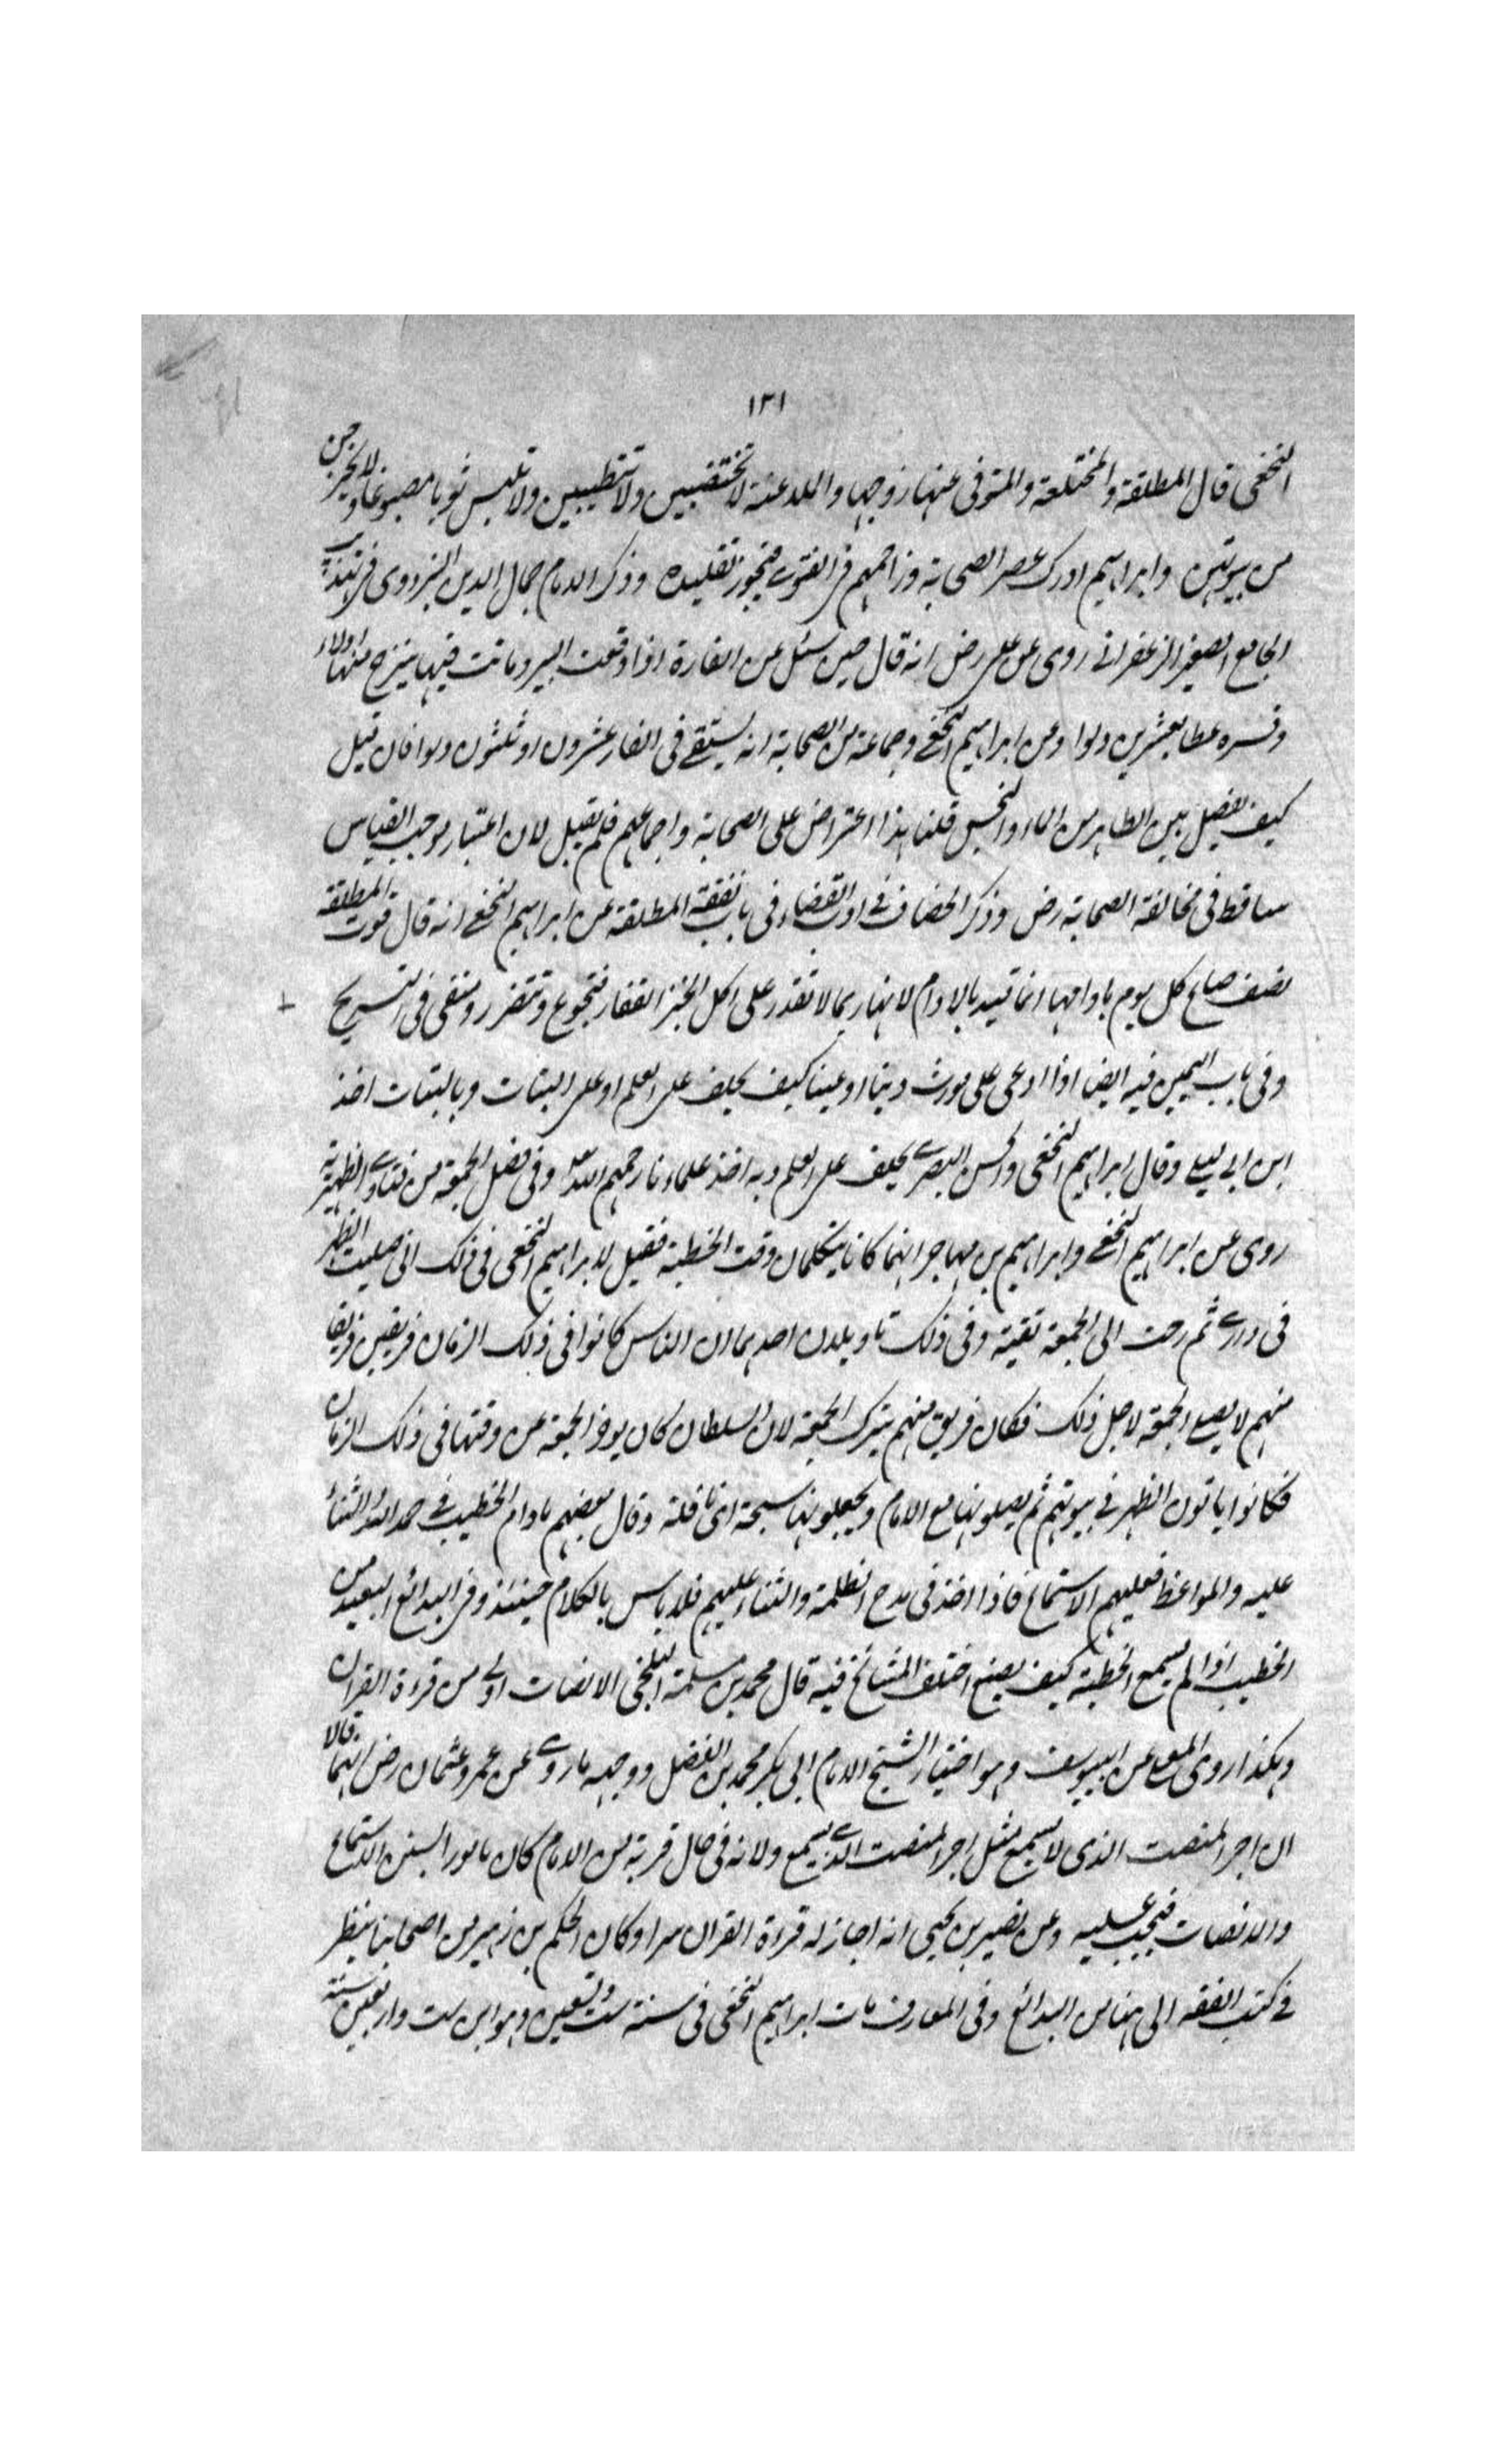 ١٢١
النخعى قال المطلقة والمختلعة والمتوفى عنها زوجها والملاعنة لا تختضبين ولا تتطيبين ولا تلبس ثوبا مصبوغا ولا يخرجن
من بيوتهن وابراهيم ادرك عصر الصحابة وزاحمهم فى الفتوى فيجوز تقليده وذكر الامام جمال الدين البزدوى فى تهذيب
الجامع الصغير الزعفرانى روى عن على رض انه قال حين سئل عن الفارة اذا وقعت البير وماتت فيها ينزح منها دلاء
وفسره عطا بعشرين دلوا وعن ابراهيم النخعى وجماعة من الصحابة انه يستقى فى الفار عشرون او ثلثون دلوا فان قيل
كيف يفصل بين الطاهر من الماء والنجس قلنا هذا اعتراض على الصحابة واجماعهم فلم يقبل لان اعتبار موجب القياس
ساقط فى مخالفة الصحابة رض وذكر الخصاف فى ادب القضاء فى باب نفقة المطلقة عن ابراهيم النخعى انه قال قوت المطلقة
نصف صاع كل يوم بادامها انما قيد بالادام لانها ربما لا تقدر على اكل الخبز القفار فتجوع وتتضرر ومنفى فى التسريح
وفى باب اليمين فيه ايضا اذا ادعى على مورث دينا او عينا كيف يحلف على العلم او على البتات وبالبتات اخذ
ابن ابى ليلى وقال ابراهيم النخعى والحسن البصرى يحلف على العلم وبه اخذ علماءنا رحمهم الله وفى فصل الجمعة من فتاوى الظهيرية
روى عن ابراهيم النخعى وابراهيم بن مهاجر انهما كانا يتكلمان وقت الخطبة فقيل لابراهيم النخعى فى ذلك انى صليت الظهر
فى دارى ثم رحت الى الجمعة تقية وفى ذلك تاويلان احدهما ان الناس كانوا فى ذلك الزمان فريقين فريقا
منهم لا يصلى الجمعة لاجل ذلك فكان فريق منهم يترك الجمعة لان السلطان كان يوخر الجمعة عن وقتها فى ذلك الزمان
فكانوا ياتون الظهر فى بيوتهم ثم يصلونها مع الامام ويجعلونها سبحة اى نافلة وقال بعضهم مادام الخطيب فى حمد الله والثناء
عليه والمواعظ فعليهم الاستماع فاذا اخذ فى مدح الظلمة والثناء عليهم فلا باس بالكلام حينئذ وفى البدائع البعيد من
الخطيب اذا لم يسمع الخطبة كيف يصنع اختلف المشائخ فيه قال محمد بن سلمة البلخى الانصات اولى من قرءة القران
وهكذا روى المعلى عن ابييوسف وهو اختيار الشيخ الامام ابى بكر محمد بن الفضل ووجهه ما روى عن عمر وعثمان رض انهما قالا
ان اجر المنصت الذى لا يسمع مثل اجر المنصت الذى يسمع ولانه فى حال قربه من الامام كان مامورا بشيئين الاستماع
والانصات فيجب عليه وعن نصير بن يحيى انه اجاز له قرءة القران سرا وكان الحكم بن زهير من اصحابنا ينظر
فى كتب الفقه الى هنا من البدائع وفى المعارف مات ابراهيم النخعى فى سنة ست وتسعين وهو ابن ست واربعين سنة